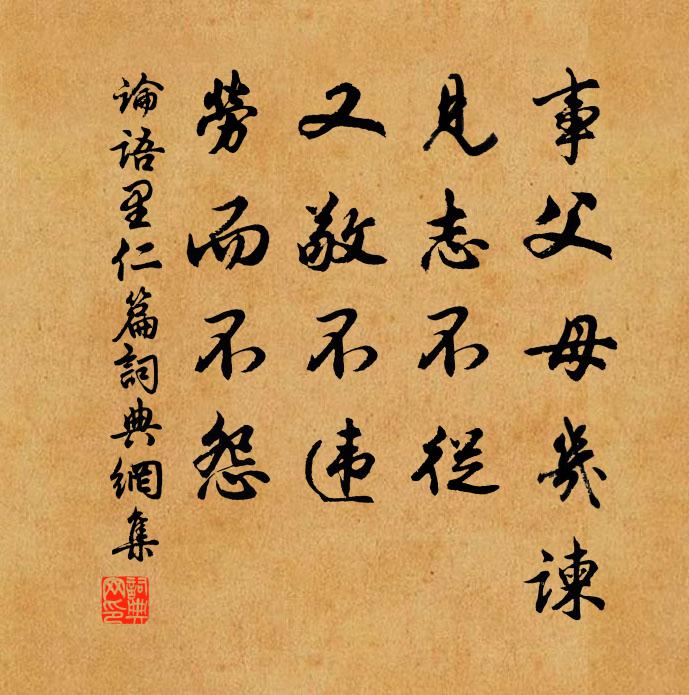 事父母幾諫
見志不從
又敬不違
勞而不怨
論語里仁篇詞典網集
詞典网印